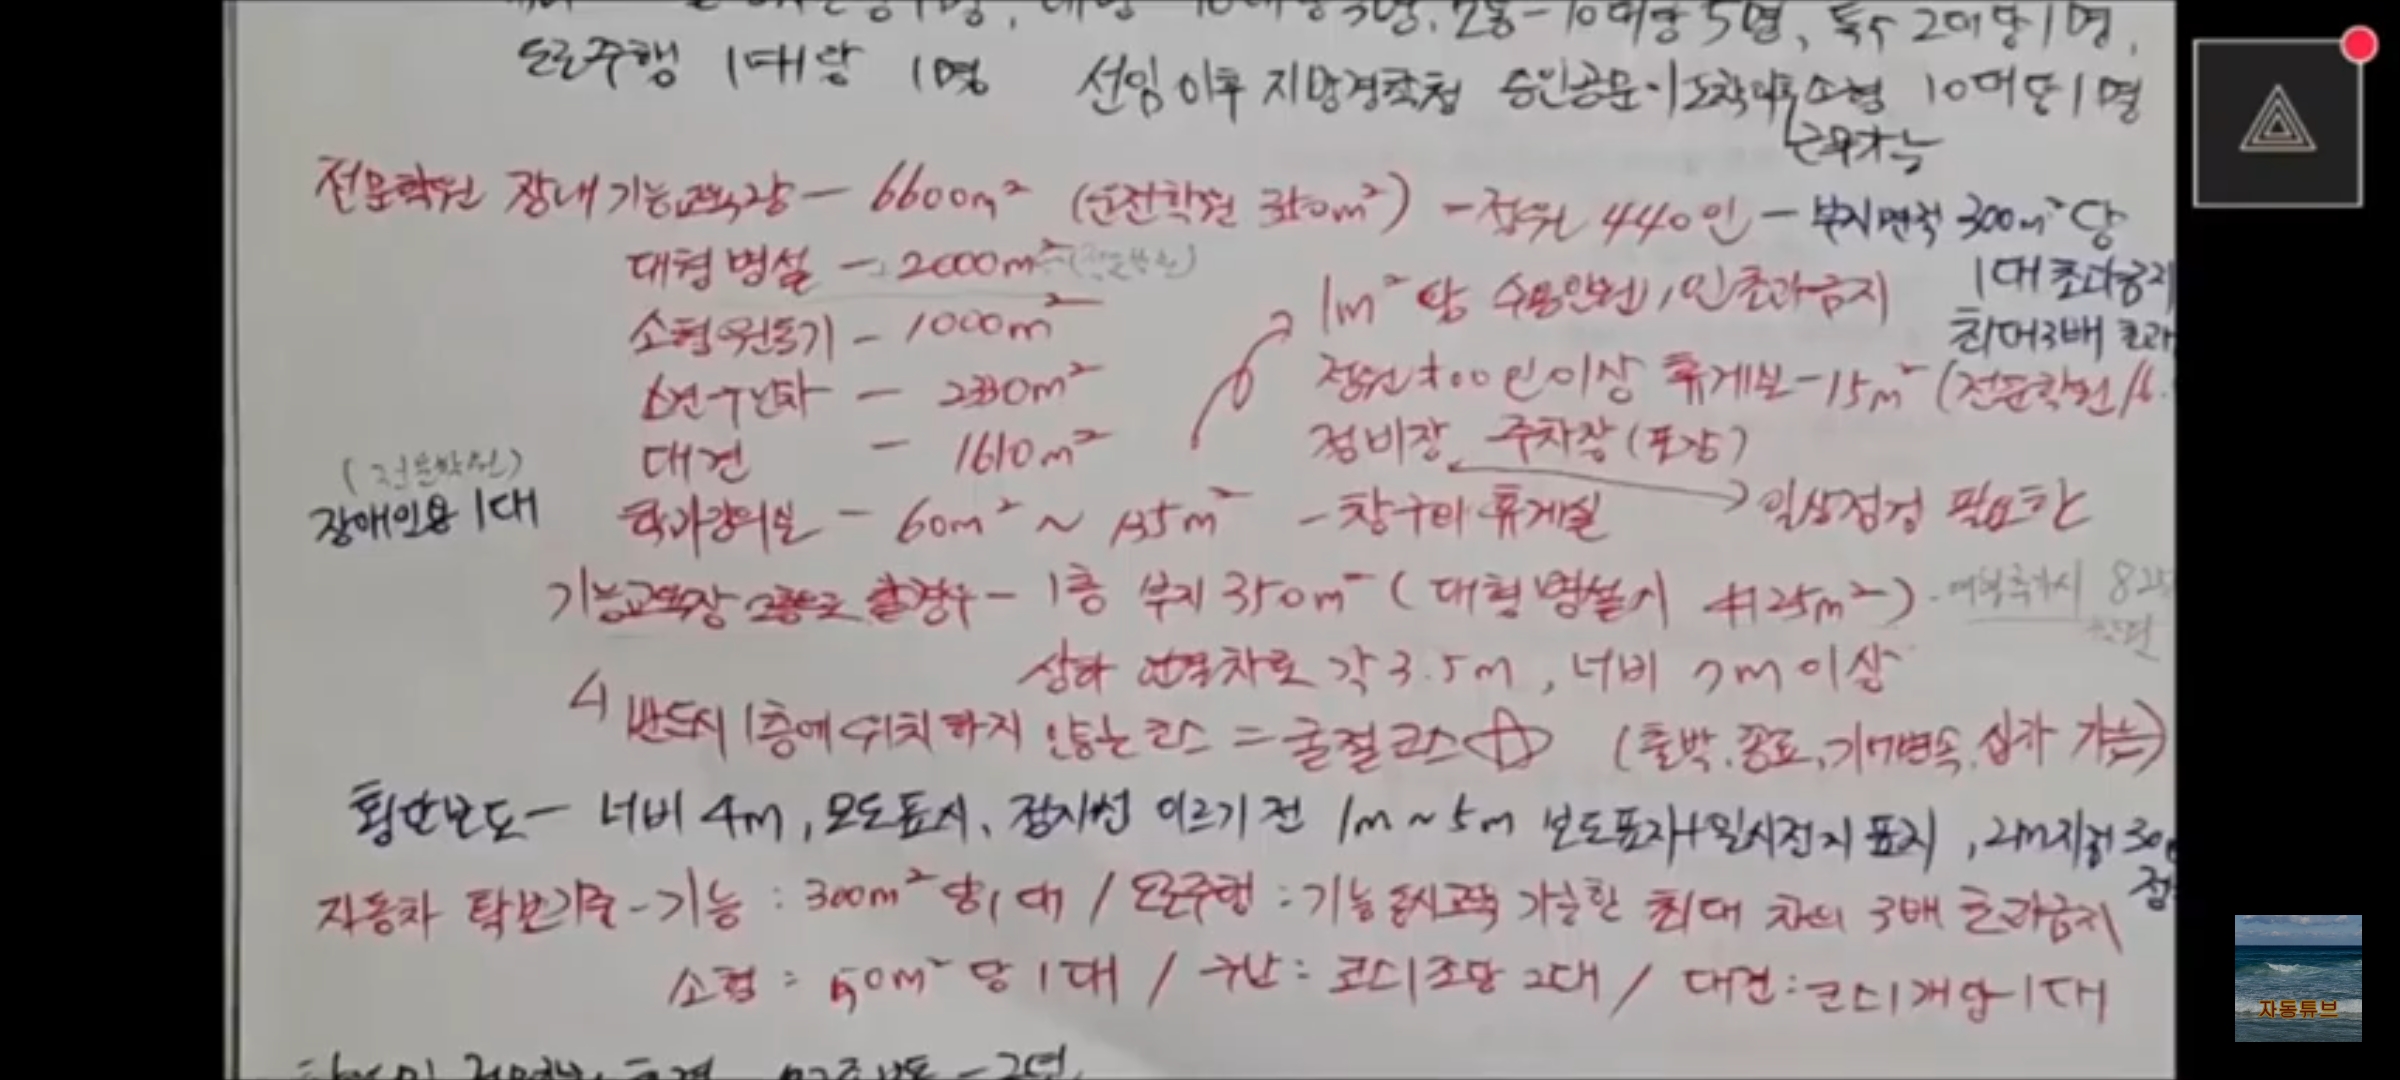 10대당 3명, 2종-10대당 5명, 특수 2대당 1명,
도로주행 1대당 1명 선임 이후 지방경찰청 승인공문이 도착 소형 10대당 1명
근무가능
전문학원 장내기능교육장 - 6600m² (운전학원 m²) - 정원 440인 - 부지면적 300m²당
대형병설 - 2000m² (전문학원)
1대 초과금지
1m²당 수용인원 1인초과금지
소형원동기 - 1000m²
최대 3배 초과
구난차 - 2330m²
정원 인이상 휴게실 - 15m² (전문학원
대견 - 1610m²
정비장 주차장(포장)
(전문학원)
장애인용 1대
학과강의실 - 60m² ~ 135m² - 창구비 휴게실 → 일상점검 필요한
기능교육장 - 1층 부지 m² (대형병설시 4125m²) -
상하 연결차로 각 3.5m, 너비 7m 이상
반드시 1층에 위치하지 않는코스 = 굴절코스☆ (출발, 종료, 기어변속, 십자 가능)
횡단보도 - 너비 4m, 도표시, 정지선 이르기 전 1m~5m 보도표지+일시정지 표지,
자동차 확보기준 - 기능 : 300m²당 1대 / 도로주행 : 기능동시교육 가능한 최대 차의 3배 초과금지
소형 : 50m²당 1대 / 구난 : 코스1조당 2대 / 대견 : 코스1개당 1대
자동튜브